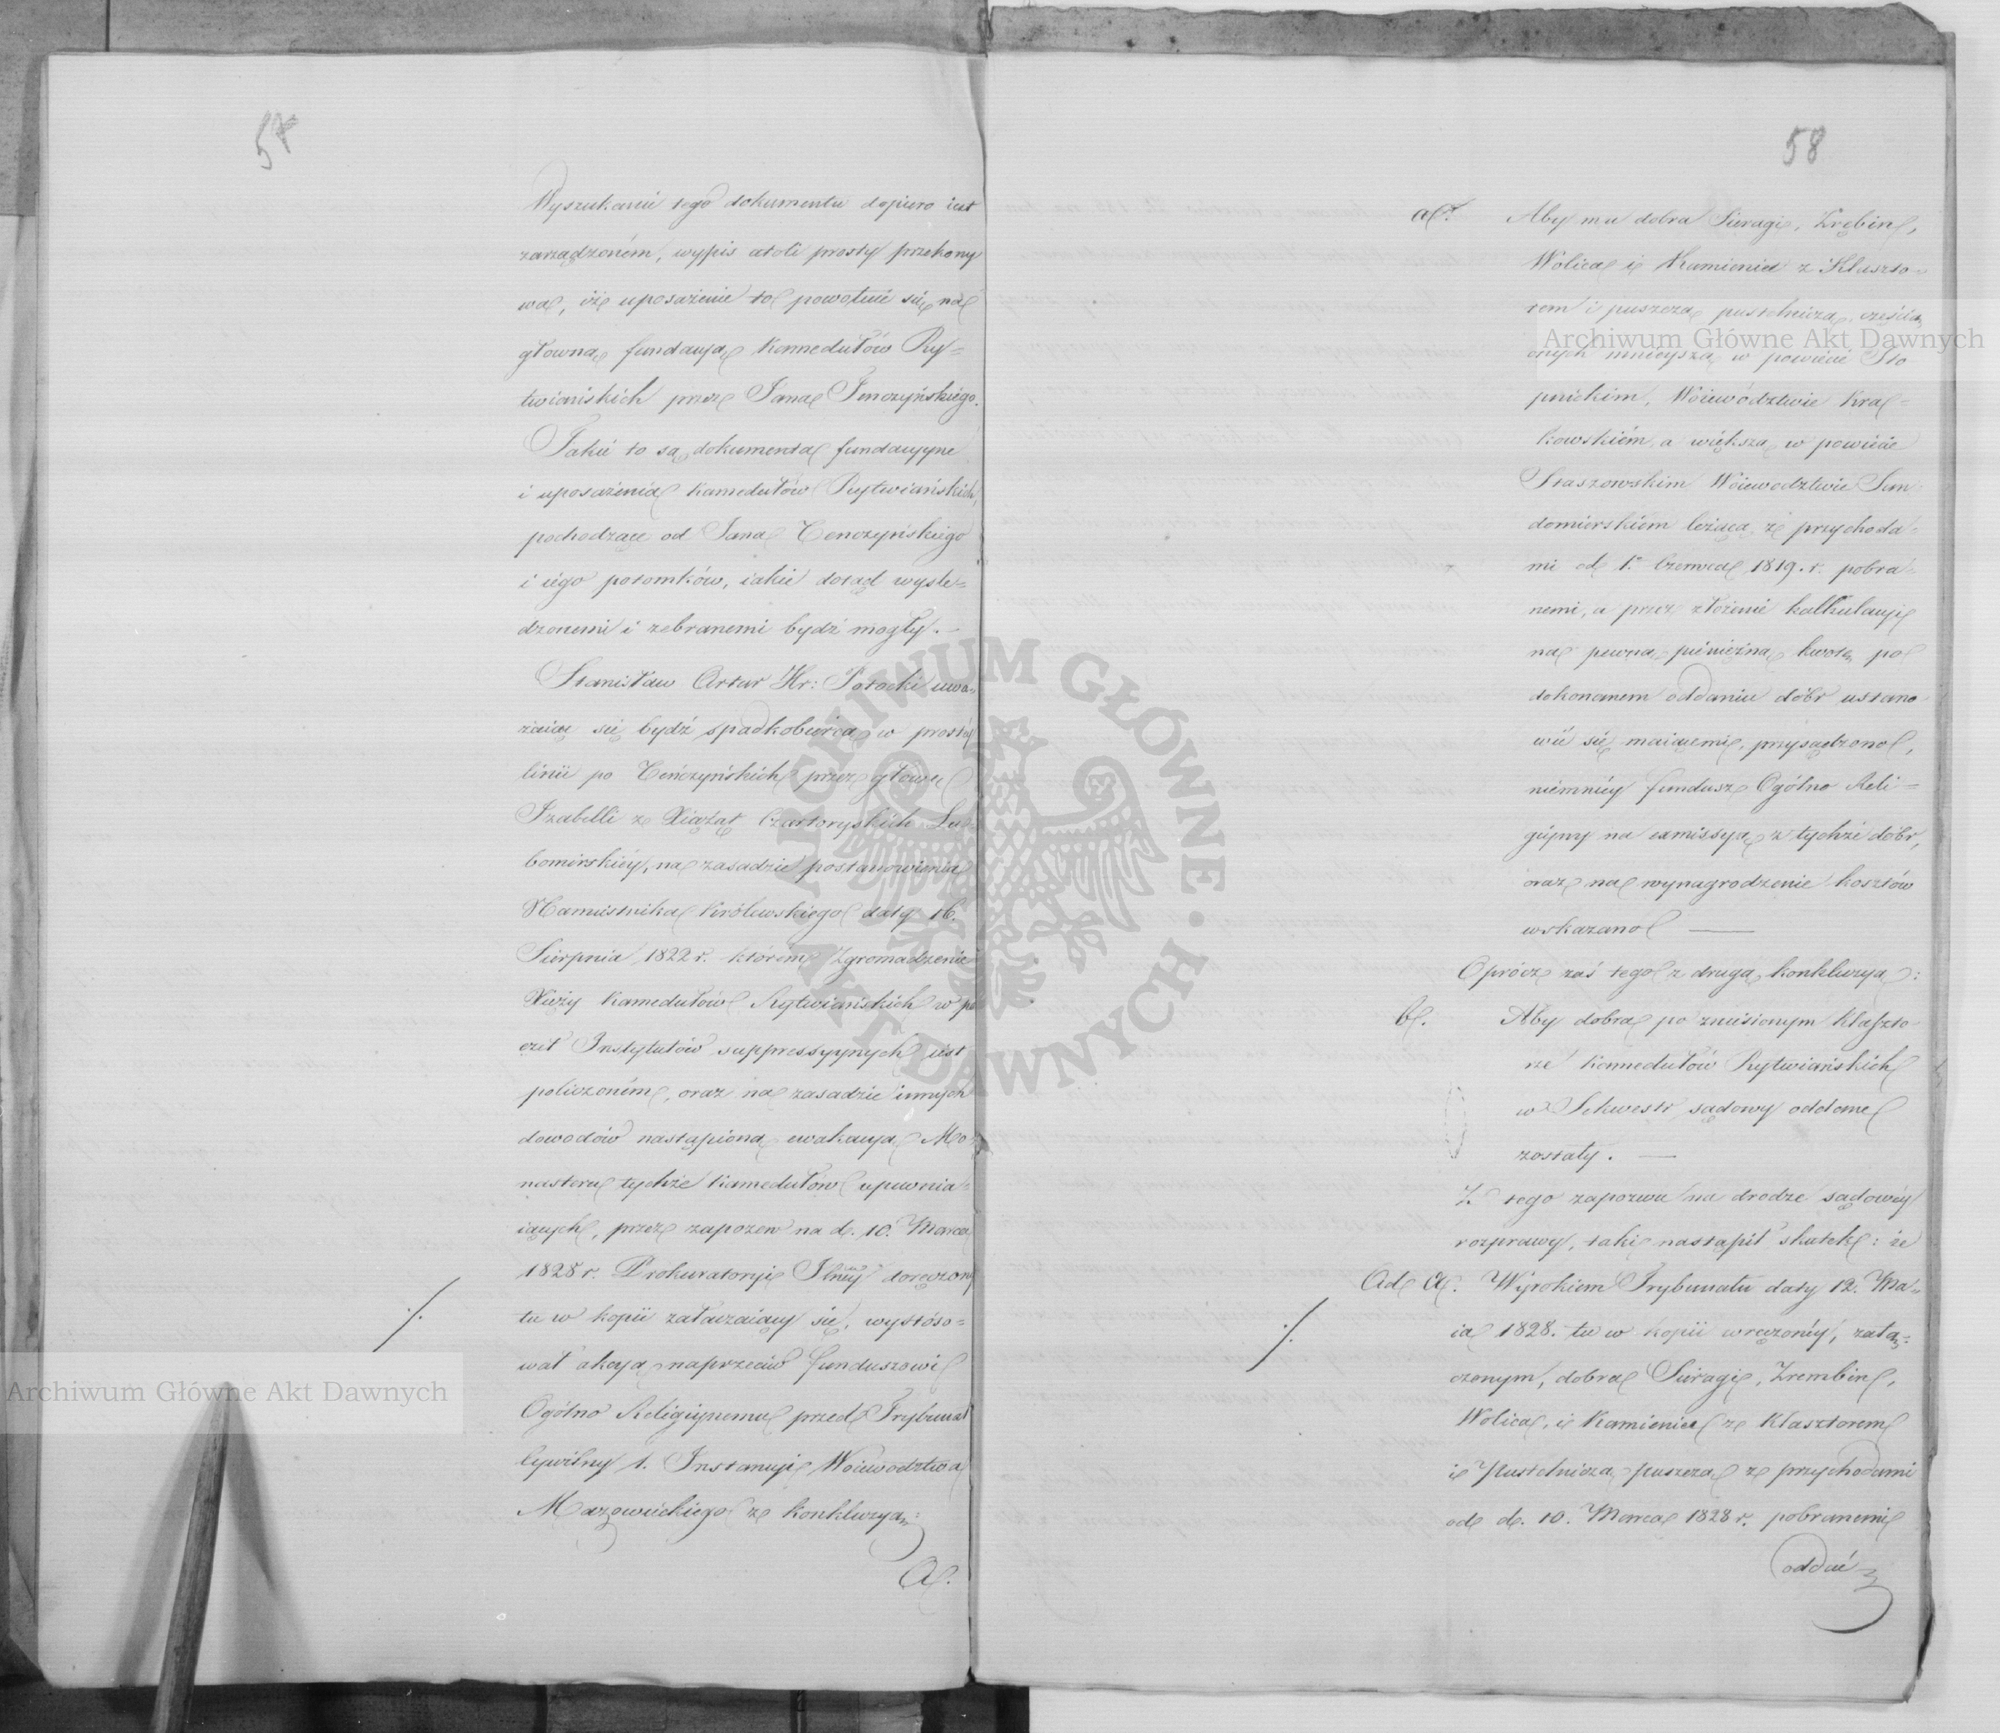 57
Wyszukanie tego dokumentu dopiero iest
zarządzoném, wypis atoli prosty przekony
wa, iże uposażenie to powołuie się na
główną fundacyą Kamedułów Ry=
twiańskich przez Jana Tenczyńskiego.
Takie to są dokumenta fundacyyne
i uposażenia Kamedułów Rytwiańskich,
pochodzące od Jana Tenczyńskiego
i iego potomków, iakie dotąd wyśle=
dzonemi i zebranemi bydź mogły. —
Stanisław Artur Hr: Potocki uwa=
żaiąc się bydź spadkobiercą w prostéy
linii po Tenczyńskich przez głowę
Izabelli z Xiążąt Czartoryskich Lu=
bomirskiéy, na zasadzie postanowienia
Namiestnika Królewskiego daty 16.
Sierpnia 1822 r. którém Zgromadzenie
Xięży Kamedułów Rytwiańskich w po
czet Instytutów suppressyynych iest
policzoném, oraz na zasadzie innych
dowodów nastąpioną ewakuacyą Mo=
nasteru tychże Kamedułów upewnia=
iących, przez zapozew na d. 10. Marca
1828 r. Prokuratoryi doręczony
tu w kopii załączaiący się, wystóso=
wał akcyą naprzeciw funduszowi
Ogólno Religiynemu przed Trybunał
Cywilny 1. Instancyi Woiewództwa
Mazowieckiego z konkluzyą:
A.
58
a.
Aby mu dobra Sieragi, Zrębin,
Wolica i Kamieniec z Klaszto=
rem i puszczą pustelniczą, częścią
onych mnieyszą w powiecie Sto
pnickim, Woiewództwie Kra=
kowskiém, a większą w powiecie
Staszowskim Woiewództwie San=
domierskiém leżące, z przychoda=
mi od 1. Czerwca 1819. r. pobra=
nemi, a przez złożenie kalkulacyi
na pewną pieniężną kwotę po
dokonanem oddaniu dóbr ustano
wić się maiącemi, przysądzono,
niemniéy fundusz Ogólno Reli=
giyny na exmissyą z tychże dóbr,
oraz na wynagrodzenie kosztów
wskazano —
Oprócz zaś tego z drugą konkluzyą:
b.
Aby dobra po zniesionym klaszto=
rze Kamedułów Rytwiańskich
w Sekwestr sądowy oddane
zostały. —
Z tego zapozwu na drodze sądowéy
rozprawy, taki nastąpił skutek: że
Ad A. Wyrokiem Trybunału daty 12. Ma=
ia 1828. tu w kopii wręczonéy, załą=
czonym, dobra Sieragi, Zrembin,
Wolica, i Kamieniec z Klasztorem
i Pustelniczą puszczą z przychodami
od d. 10. Marca 1828 r. pobranemi
oddać
Archiwum Główne Akt Dawnych
Archiwum Główne Akt Dawnych
ARCHIWUM GŁÓWNE · AKT DAWNYCH ·